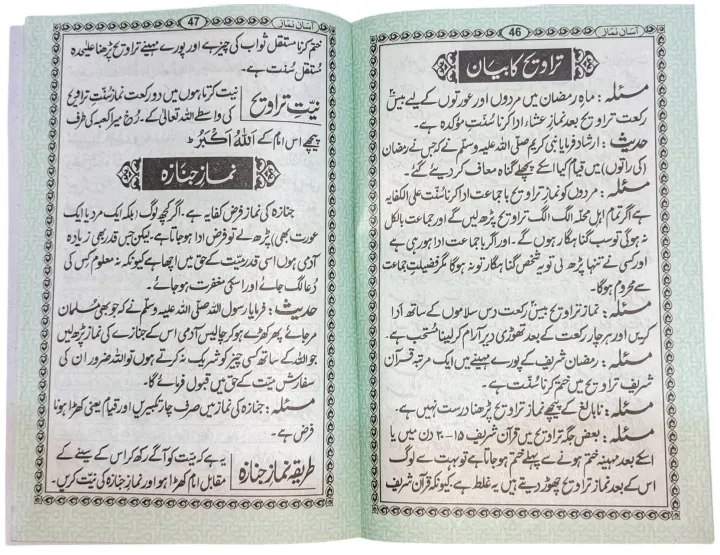 آسان نماز
46
تراویح کا بیان
مسئلہ: ماہِ رمضان میں مردوں اور عورتوں کے لیے بیس ۲۰
رکعت تراویح بعد نمازِ عشاء ادا کرنا سُنّتِ مؤکدہ ہے۔
حدیث: ارشاد فرمایا نبی کریم صلی اللہ علیہ وسلم نے کہ جس نے رمضان
(کی راتوں) میں قیام کیا اسکے پچھلے گناہ معاف کر دیئے گئے۔
مسئلہ: مردوں کو نمازِ تراویح با جماعت ادا کرنا سُنّت علی الکفایہ
ہے اگر تمام اہل محلہ الگ الگ تراویح پڑھ لیں گے اور جماعت بالکل
نہ ہوگی تو سب گناہگار ہوں گے۔ اور اگر با جماعت ادا ہو رہی ہے
اور کسی نے تنہا پڑھ لی تو یہ شخص گناہگار تو نہ ہوگا مگر فضیلتِ جماعت
سے محروم ہوگا۔
مسئلہ: نماز تراویح بیس۲۰ رکعت دس سلاموں کے ساتھ ادا
کریں اور ہر چار رکعت کے بعد تھوڑی دیر آرام کر لینا مُستحب ہے۔
مسئلہ: رمضان شریف کے پورے مہینے میں ایک مرتبہ قرآن
شریف تراویح میں ختم کرنا سُنّت ہے۔
مسئلہ: نابالغ کے پیچھے نماز تراویح پڑھنا درست نہیں ہے۔
مسئلہ: بعض جگہ تراویح میں قرآن شریف ۱۵-۲۰ دن میں یا
اسکے بعد مہینہ ختم ہونے سے پہلے ختم ہو جاتا ہے تو بہت سے لوگ
اس کے بعد نماز تراویح چھوڑ دیتے ہیں یہ غلط ہے۔ کیونکہ قرآن شریف
47
آسان نماز
ختم کرنا مستقل ثواب کی چیز ہے اور پورے مہینے تراویح پڑھنا علیحدہ
مُستقل سُنّت ہے۔
نیّتِ تراویح
نیت کرتا ہوں میں دو رکعت نماز سُنّتِ تراویح
کی واسطے اللہ تعالیٰ کے۔ رُخ میرا کعبہ کی طرف
پیچھے اس امام کے اَللّٰہُ اَکْبَرُ ط
نمازِ جنازہ
جنازہ کی نماز فرض کفایہ ہے۔ اگر کچھ لوگ (بلکہ ایک مرد یا ایک
عورت بھی) پڑھ لے تو فرض ادا ہو جاتا ہے۔ لیکن جس قدر بھی زیادہ
آدمی ہوں اسی قدر میّت کے حق میں اچھا ہے کیونکہ نہ معلوم کِس کی
دُعا لگ جائے اور اسکی مغفرت ہو جائے۔
حدیث: فرمایا رسول اللہ صلی اللہ علیہ وسلم نے کہ جو بھی مُسلمان
مر جائے پھر کھڑے ہو کر چالیس آدمی اس کے جنازے کی نماز پڑھ لیں
جو اللہ کے ساتھ کسی چیز کو شریک نہ کرتے ہوں تو اللہ ضرور ان کی
سفارش میّت کے حق میں قبول فرمائے گا۔
مسئلہ: جنازہ کی نماز میں صرف چار تکبیریں اور قیام یعنی کھڑا ہونا
فرض ہے۔
طریقہ نمازِ جنازہ
یہ ہے کہ میّت کو آگے رکھ کر اس کے سینے کے
مقابل امام کھڑا ہو اور نمازِ جنازہ کی نیّت کریں۔